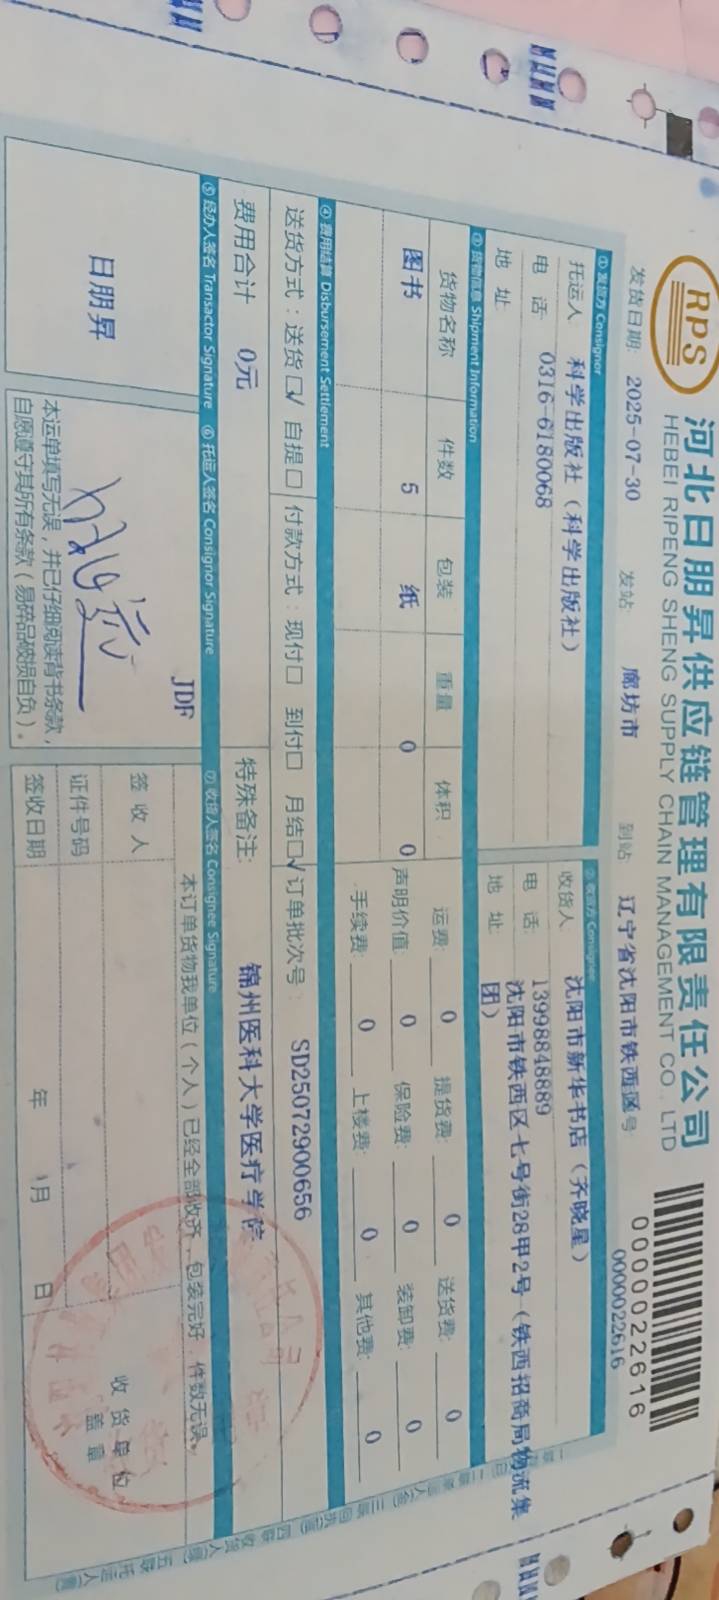 RPS
河北日朋昇供应链管理有限责任公司
HEBEI RIPENG SHENG SUPPLY CHAIN MANAGEMENT CO . LTD
0000022616
发货日期: 2025-07-30 发站: 廊坊市 到站: 辽宁省沈阳市铁西区 号: 0000022616
① 发货方 Consignor
托运人: 科学出版社（科学出版社）
电 话: 0316-6180068
地 址:
② 收货方 Consignee
收货人: 沈阳市新华书店（齐晓星）
电 话: 13998848889
地 址: 沈阳市铁西区七号街28甲2号（铁西招商局物流集团）
③ 货物信息 Shipment Information
货物名称 件数 包装 重量 体积
图书 5 纸 0 0
运费: 0 提货费: 0 送货费: 0
声明价值: 0 保险费: 0 装卸费: 0
手续费: 0 上楼费: 0 其他费: 0
④ 费用结算 Disbursement Settlement
送货方式：送货□√ 自提□ 付款方式：现付□ 到付□ 月结□√ 订单批次号: SD25072900656
费用合计 0元 特殊备注: 锦州医科大学医疗学院
⑤ 经办人签名 Transactor Signature ⑥ 托运人签名 Consignor Signature ⑦ 收货人签名 Consignee Signature
日朋昇
JDF
本运单填写无误，并已仔细阅读背书条款，
自愿遵守其所有条款（易碎品破损自负）。
本订单货物我单位（个人）已经全部收齐，包装完好，件数无误。
签 收 人
证件号码
签收日期 年 月 日
收货单位
盖章